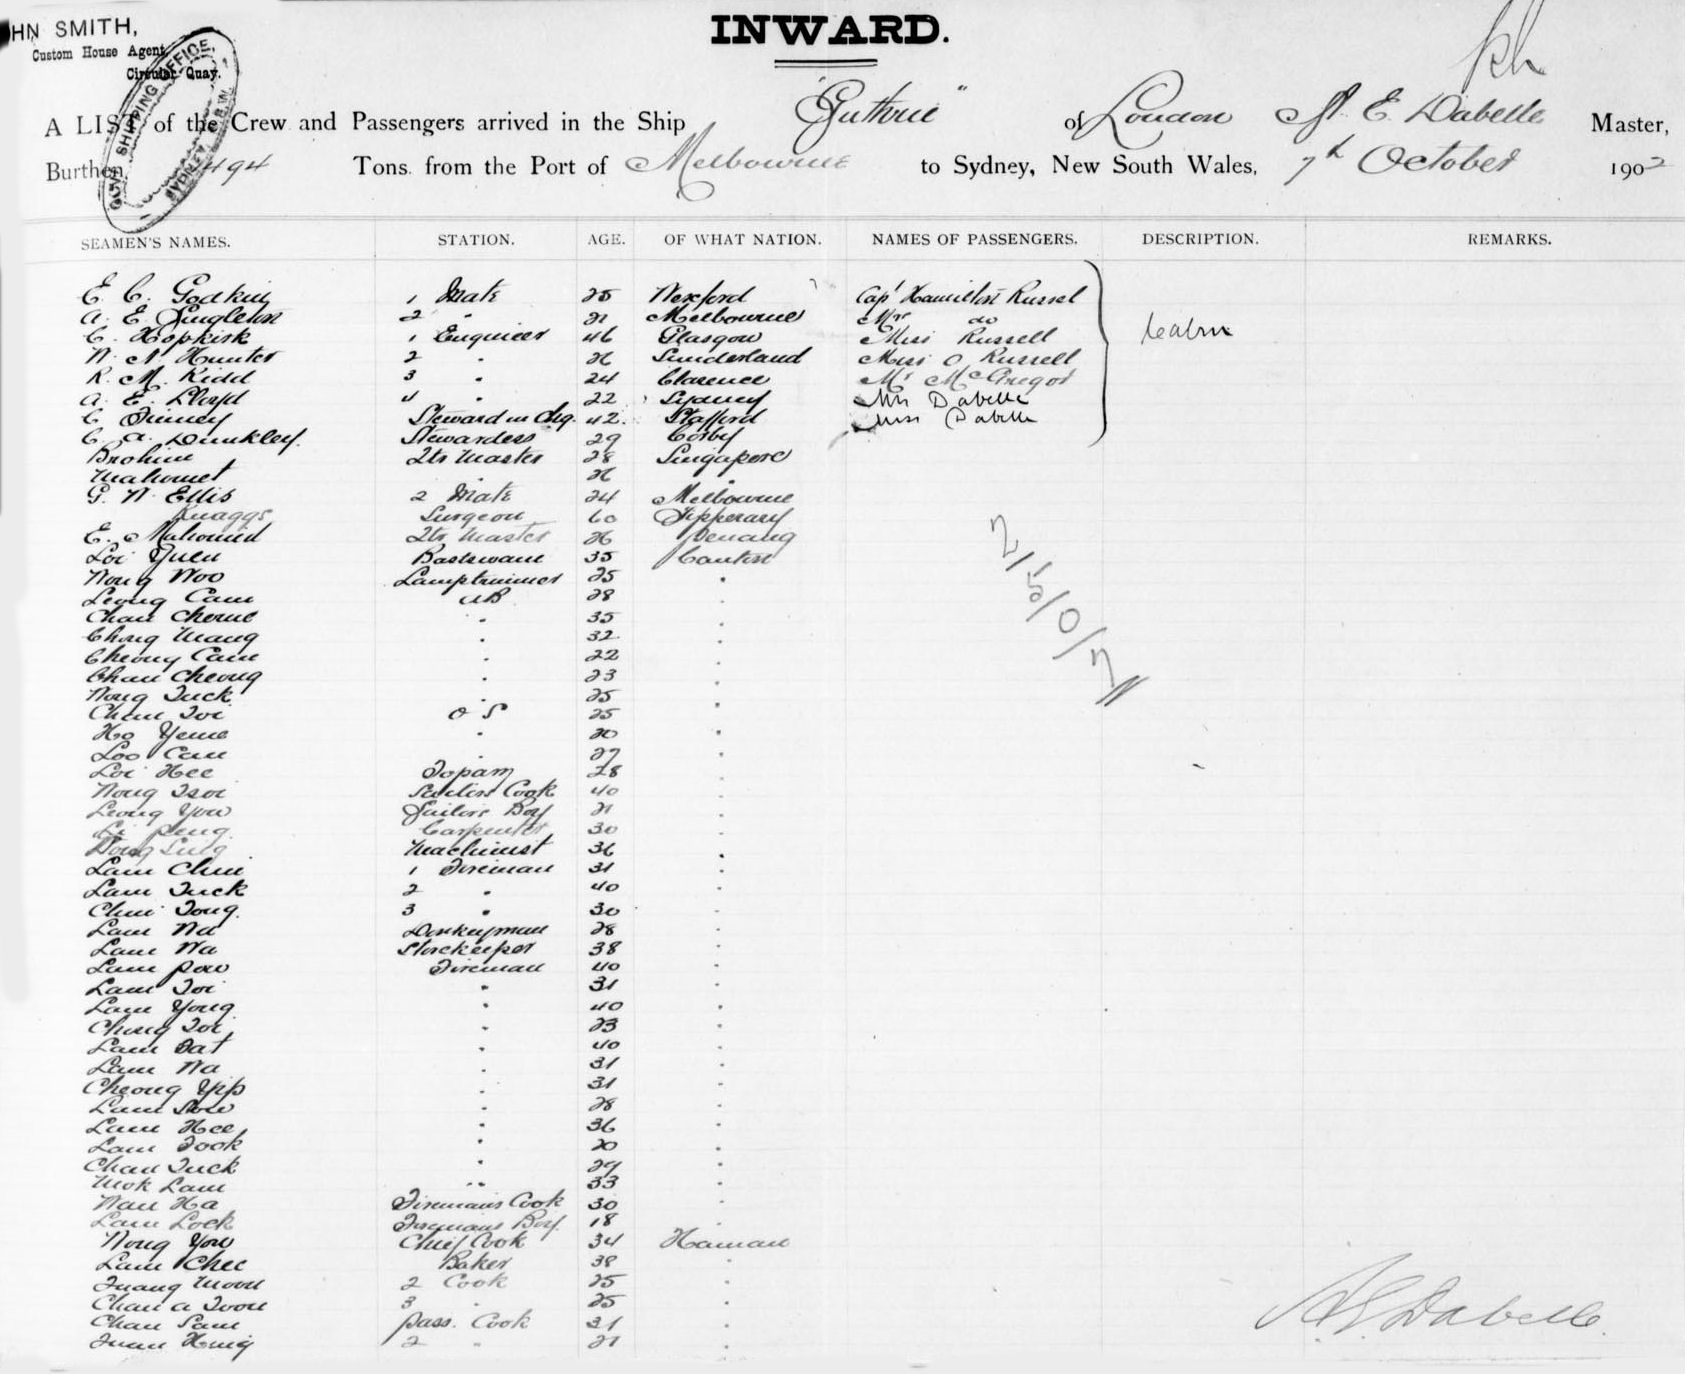 HN SMITH,
Custom House Agent,
Circular Quay.
SHIPPING OFFICE, SYDNEY, N.S.W.
INWARD.
A LIST of the Crew and Passengers arrived in the Ship "Guthrie" of London Dabelle Master,
Burthen, 1494 Tons from the Port of Melbourne to Sydney, New South Wales, 7th October 1902
SEAMEN'S NAMES. STATION. AGE. OF WHAT NATION. NAMES OF PASSENGERS. DESCRIPTION. REMARKS.
E. C. Godkin 1 Mate 25 Wexford Capt Hamilton Russel
A. E. Singleton 2 " 21 Melbourne Mrs do
C. Hopkirk 1 Engineer 46 Glasgow Miss Russell Cabin
W. N. Hunter 2 " 26 Sunderland Miss O Russell
R. M. Kidd 3 " 24 Clarence Mr McGregor
A. E. Lloyd 4 " 22 Sydney Mrs Dabelle
C Finney Steward in Chg. 42 Stafford Miss Dabelle
C. A. Dunkley. Stewardess 29 Corby
Brohim Qtr Master 28 Singapore
Mahomet " 26 "
G. W. Ellis 2 Mate 24 Melbourne
Knaggs Surgeon 60 Tipperary
E. Mahomed Qtr Master 26 Penang
Loi Yuen 35 Canton
Wong Woo Lamptrimmer 25 "
Leong Cam AB 28 "
Chan Cheme " 35 "
Chong Mang " 32 "
Cheong Cam " 22 "
Chan Cheong " 23 "
Wong Tuck " 25 "
Chan Toi O S 25 "
Ho Yeme " 20 "
Loo Cam " 27 "
Loi Hee Topam 28 "
Wong Tsoi Sailors Cook 40 "
Leong You Sailors Boy 21 "
Li Peng Carpenter 30 "
Wong Sung Machinist 36 "
Lam Chui 1 Fireman 31 "
Lam Tuck 2 " 40 "
Chui Tong 3 " 30 "
Lam Wa Donkeyman 28 "
Lam Wa Storekeeper 38 "
Lam Pow Fireman 40 "
Lam Toi " 31 "
Lam Yong " 40 "
Chong Toi " 23 "
Lam Dat " 40 "
Lam Wa " 31 "
Cheong Yip " 31 "
Lam Sow " 28 "
Lam Hee " 36 "
Lam Took " 20 "
Chan Tuck " 29 "
Mok Lam " 33 "
Wan Ha Firemans Cook 30 "
Lam Lock Firemans Boy 18 "
Wong You Chief Cook 34 Hainan
Lam Chee Baker 38 "
Tuang Moon 2 Cook 25 "
Chan A Toon 3 " 25 "
Chan Sam Pass. Cook 31 "
Tuan Hing 2 " 21 "
2/5/0/7
Dabelle